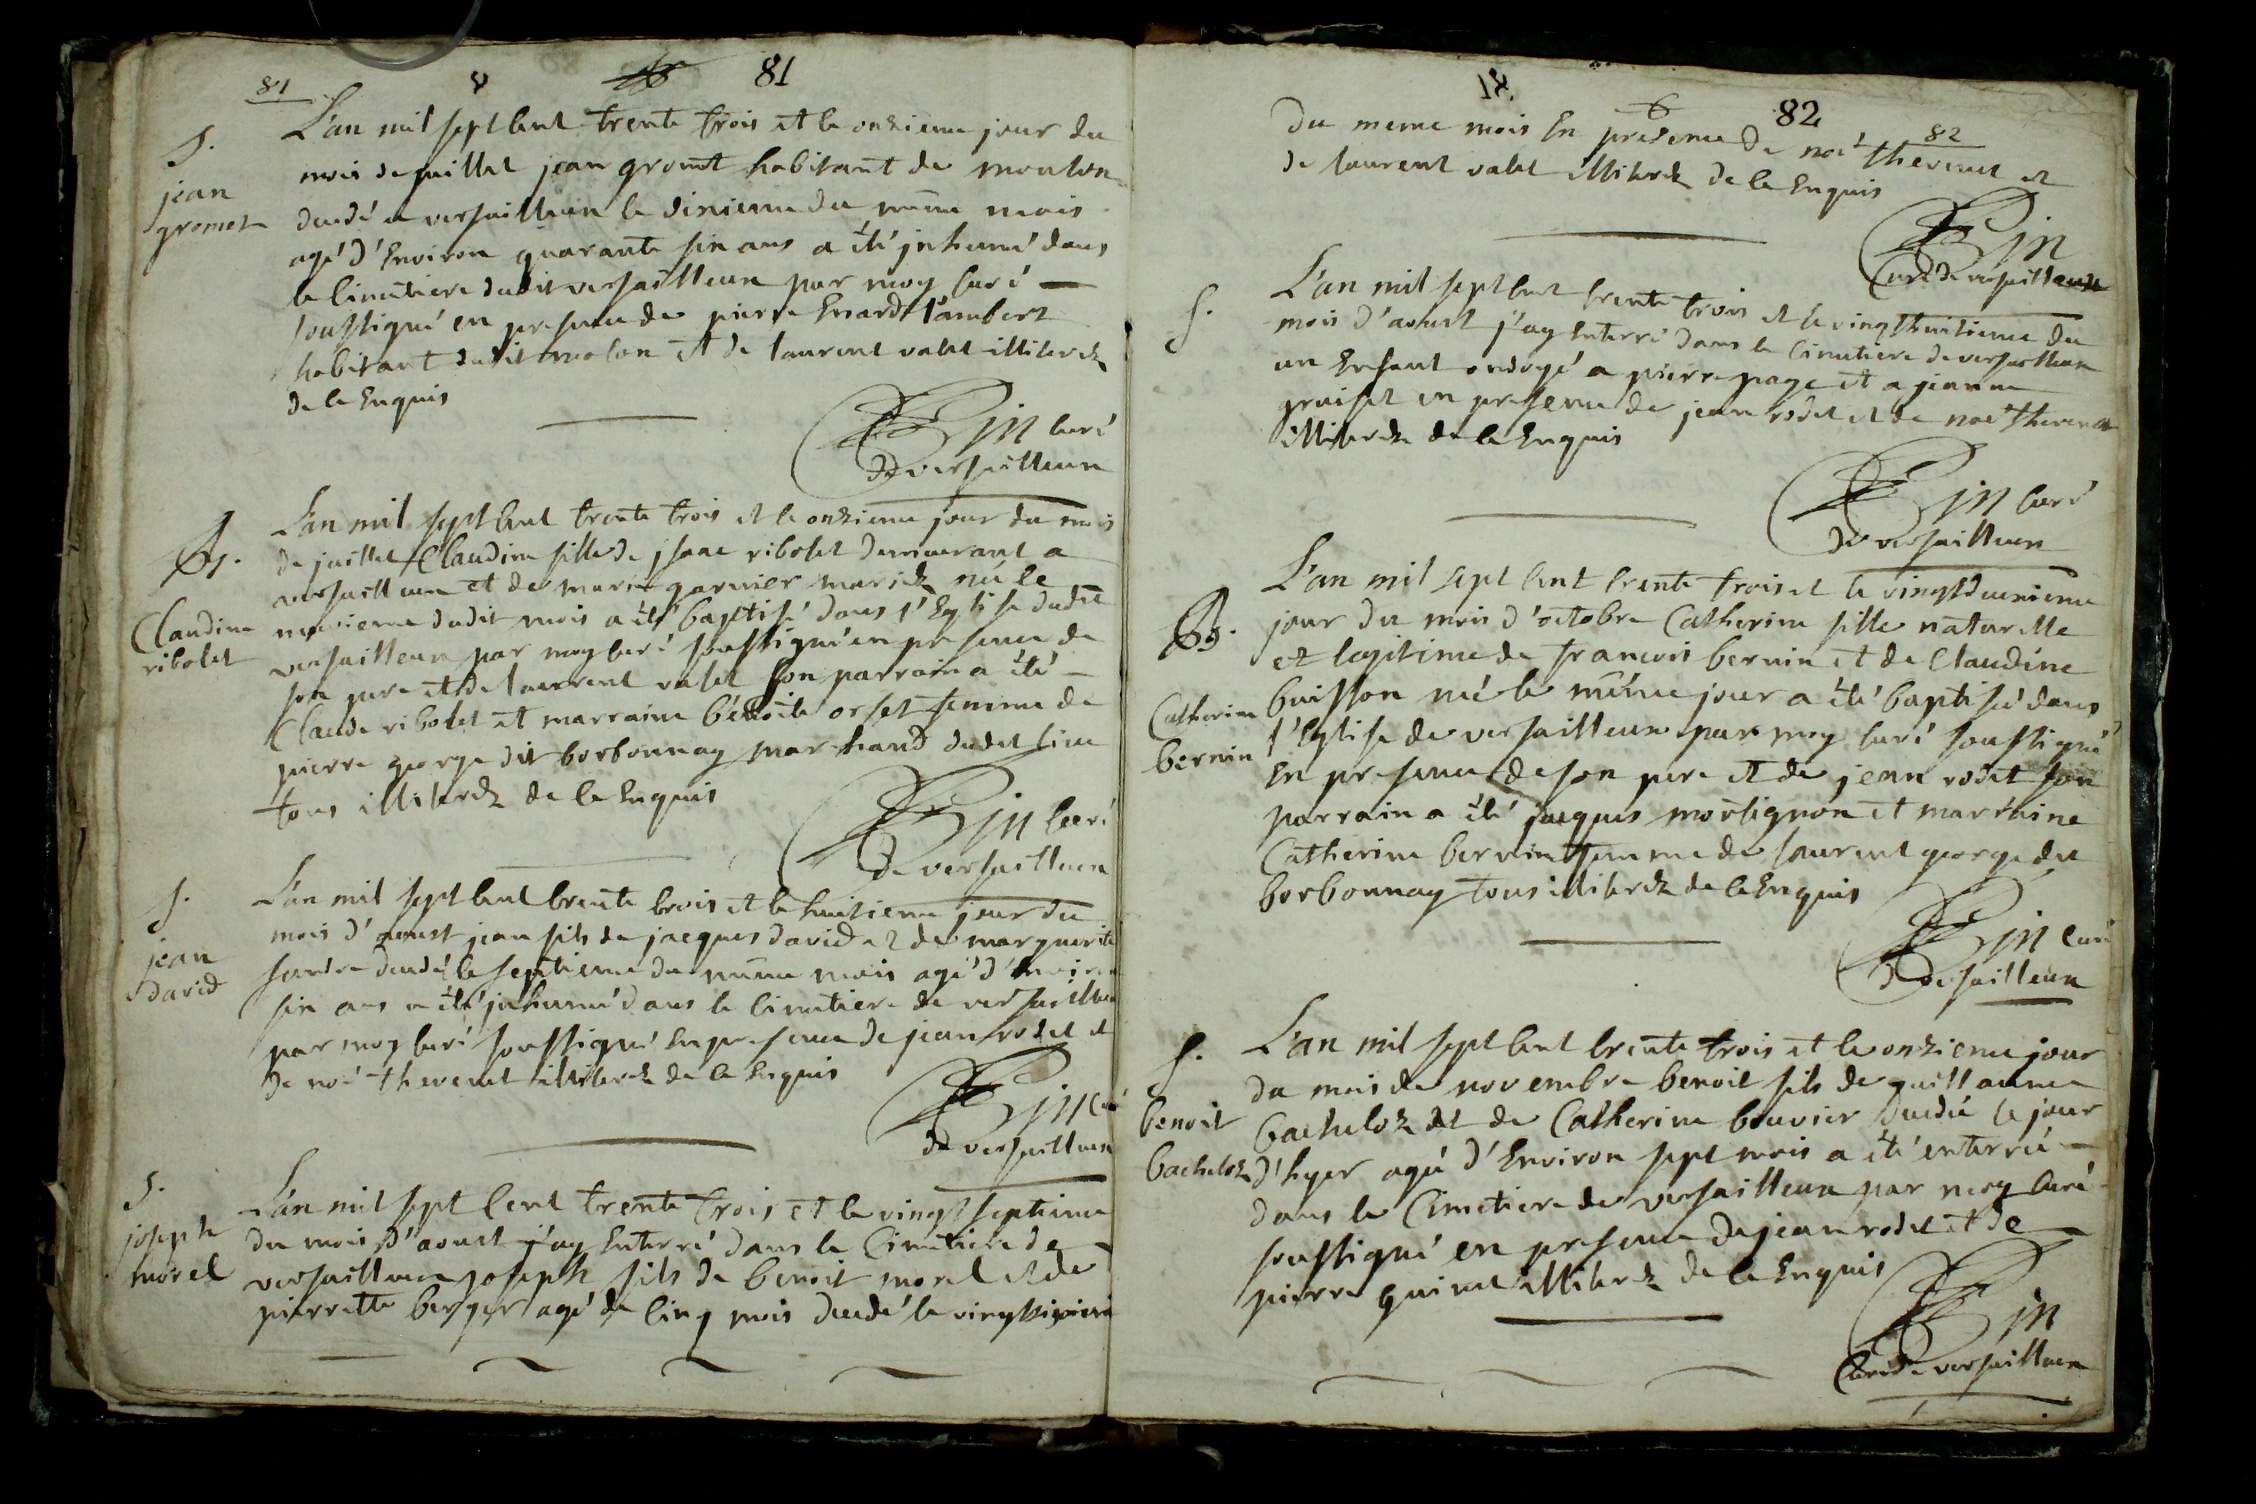 81
81
S.
jean
gromet
L'an mil sept cent trente trois et le onzieme jour du
mois de juillet jean gromet habitant de monton
decedé a versailleux le dixieme du même mois
agé d'Environ quarante six ans a été jnhumé dans
le Cimetiere dudit versailleux par moy curé
soussigné en presence de pierre Enard Lambert
habitant dudit et de laurent valet illiterez
de ce Enquis
jn curé
de versailleux
B.
Claudine
ribolet
L'an mil sept cent trente trois et le onzieme jour du mois
de juillet Claudine fille de jsaac ribolet demeurant a
versailleux et de marie garnier mariez née le
dudit mois a été baptisé dans l'Eglise dudit
versailleux par moy curé soussigné en presence de
son pere et de laurent valet son parrain a été
Claude ribolet et marraine bénoite orset femme de
pierre george dit borbonnay marchand dudit lieu
tous illiterez de ce Enquis
jn curé
de versailleux
S.
jean
david
L'an mil sept cent trente trois et le huitieme jour du
mois d'aoust jean fils de jacques david et de marguerite
decedé le septieme du même mois agé d'Environ
six ans a été jnhumé dans le Cimetiere de versailleux
par moy curé soussigné En presence de jean rodet et
de noé thevenet illiterez de ce Enquis
jn curé
de versailleux
S.
joseph
morel
L'an mil sept Cent trente trois et le vingt septieme
du mois d'aoust j'ay Enterré dans le Cimetiere de
versailleux joseph fils de benoit morel et de
pierrette berger agé de Cinq mois decedé le vingtsixieme
82
82
du meme mois En presence de noé thevenet et
de laurent valet illiterez de ce Enquis
jn
Curé de versailleux
S.
L'an mil sept cent trente trois et le vingthuitieme du
mois d'aoust j'ay Enterré dans le Cimetiere de versailleux
un Enfant ondoyé a pierre page et a jeanne
en presence de jean rodet et de noé thevenet
illiterez de ce Enquis
jn curé
de versailleux
B.
Catherine
bernin
L'an mil sept cent trente trois et le vingtdeuxieme
jour du mois d'octobre Catherine fille naturelle
et legitime de francois bernin et de Claudine
buisson née le même jour a été baptisée dans
l'Eglise de versailleux par moy curé soussigné
En presence de son pere et de jean rodet son
parrain a été jacques mortignon et marraine
Catherine bernin femme de laurent george dit
borbonnay tous illiterez de ce Enquis
jn curé
de versailleux
S.
benoit
bacheloz
L'an mil sept cent trente trois et le onzieme jour
du mois de novembre benoit fils de guillaume
bacheloz et de Catherine bouvier decedé le jour
d'hyer agé d'Environ sept mois a été enterré
dans le Cimetiere de versailleux par moy curé
soussigné en presence de jean rodet et de
pierre illiterez de ce Enquis
jn
Curé de versailleux